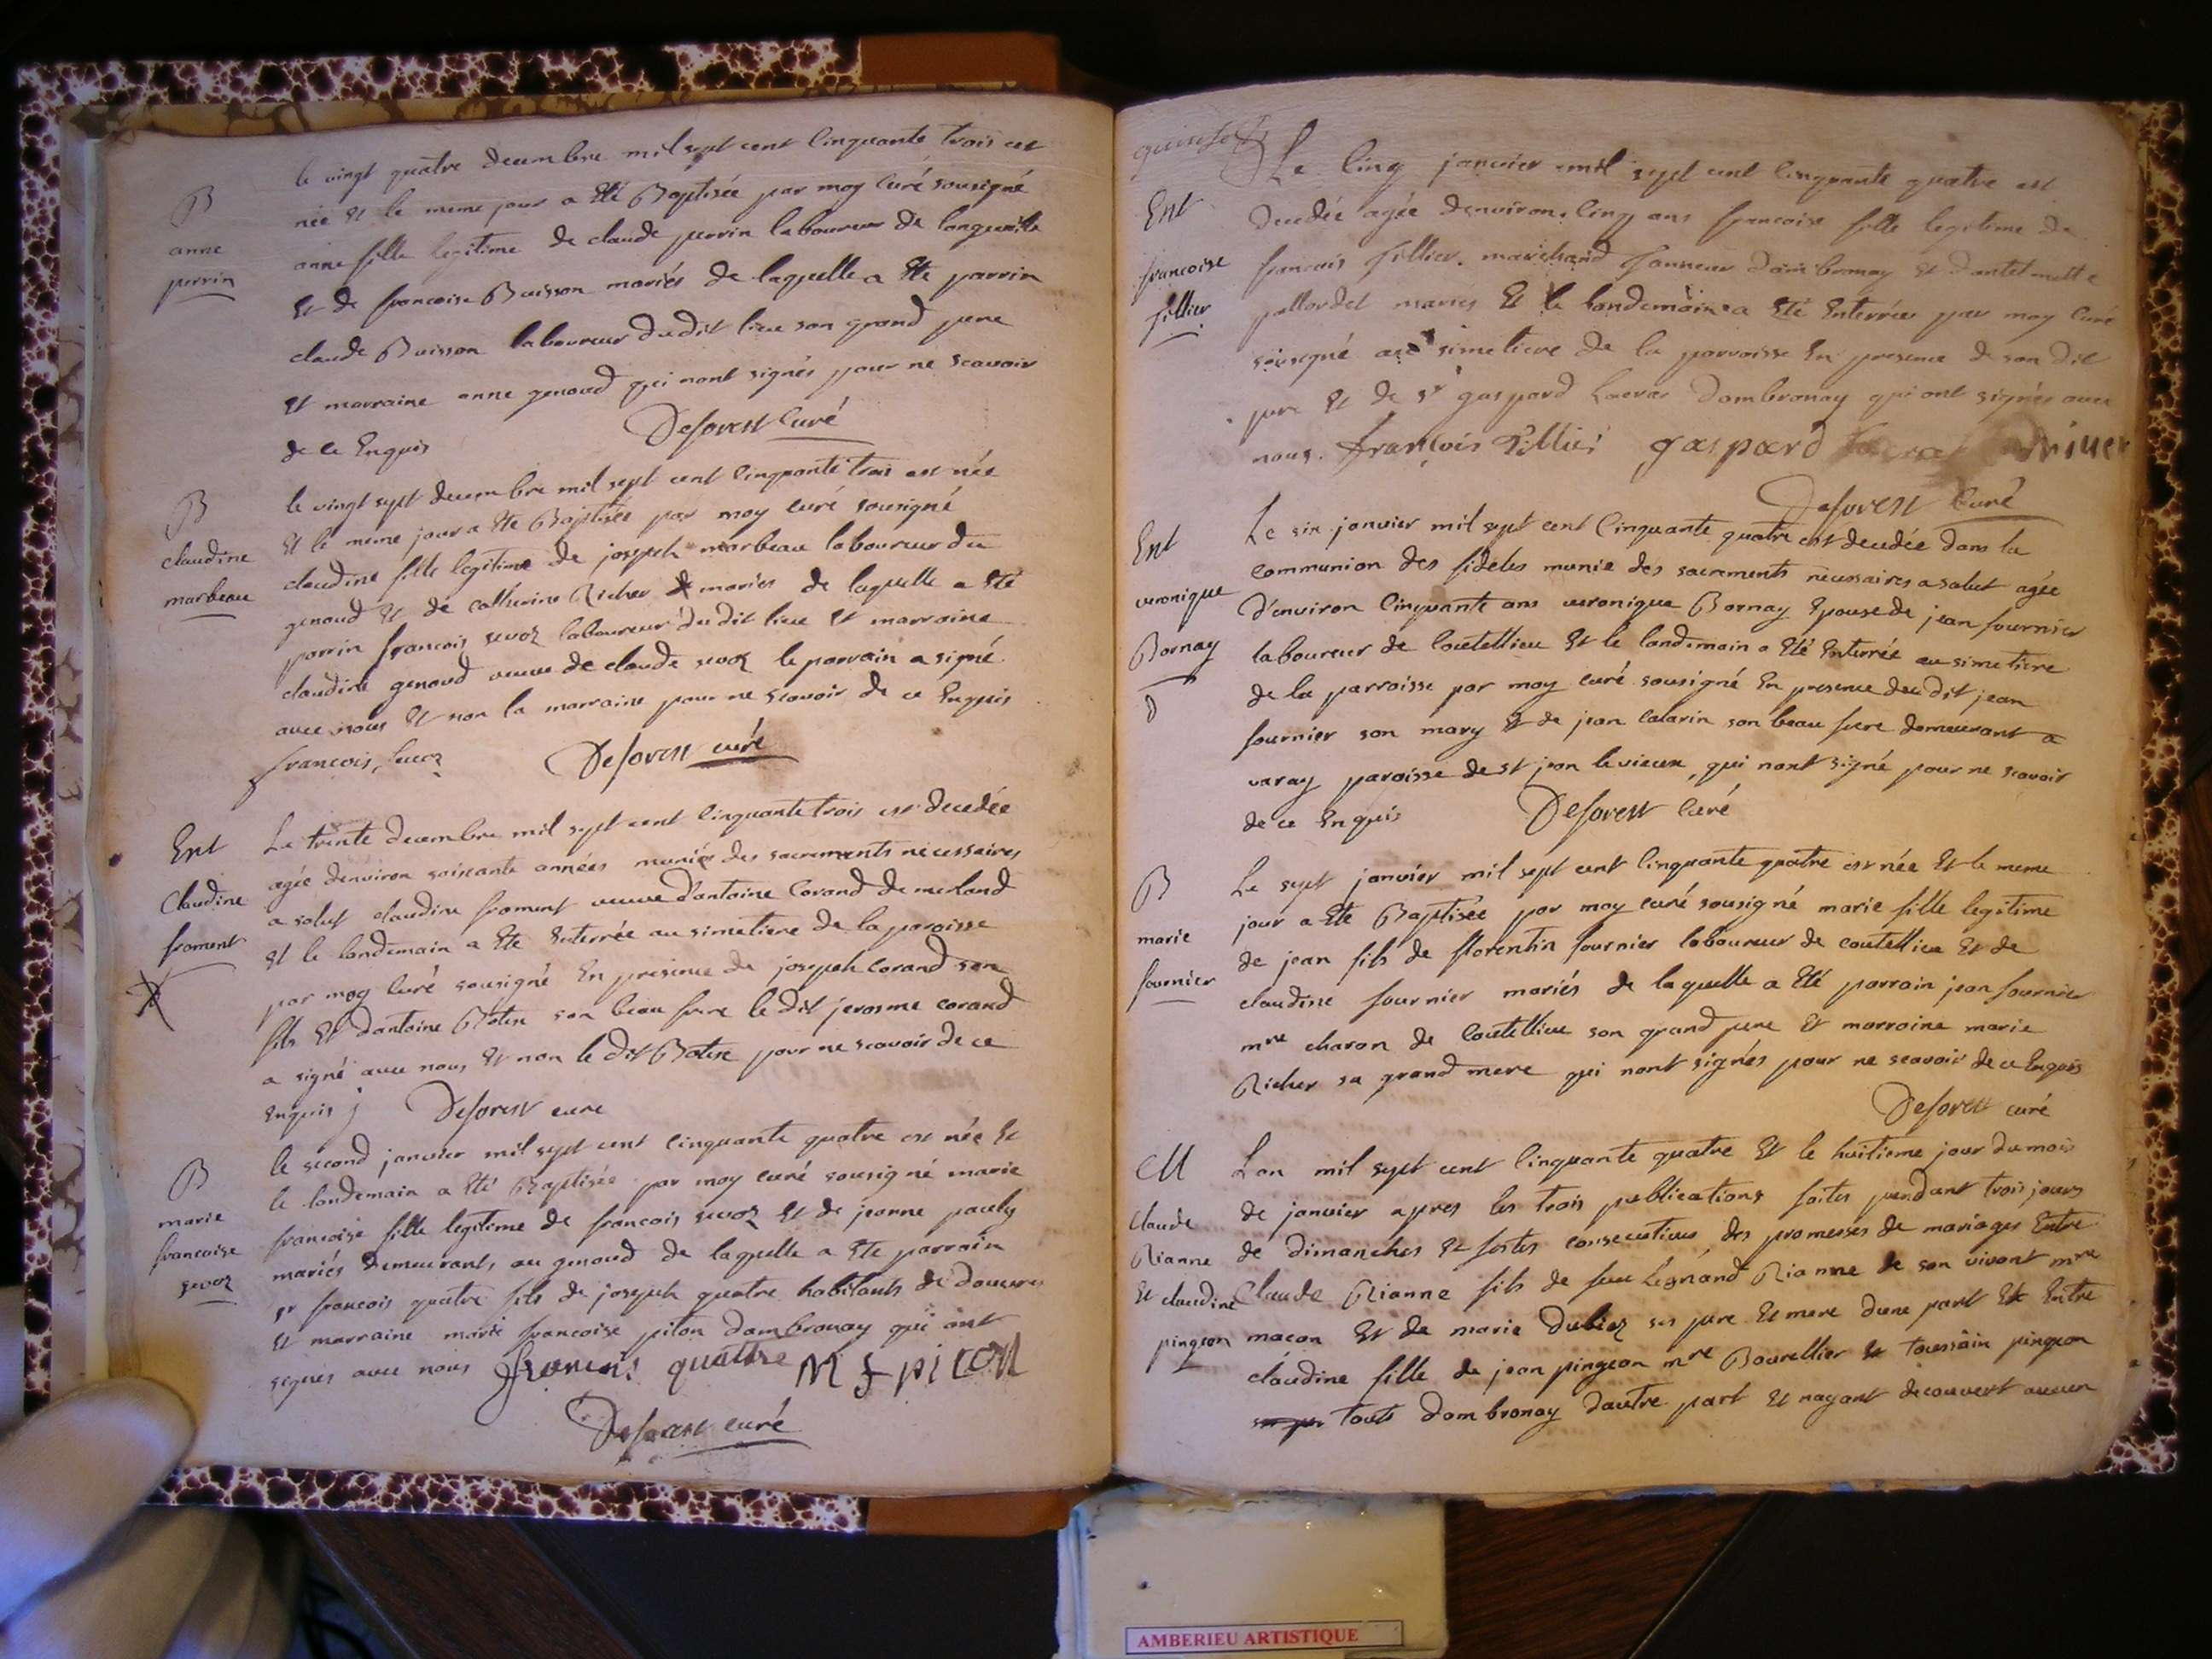 B
anne
perrin
le vingt quatre decembre mil sept cent cinquante trois est
née Et le meme jour a Eté Baptisée par moy Curé sousigné
anne fille legitime de claude perrin laboureur de longeville
Et de francoise Buisson mariés de laquelle a Eté parrin
claude Buisson laboureur du dit lieu son grand pere
Et marraine anne genoud qui nont signés pour ne scavoir
de ce Enquis Deforest Curé
B
claudine
marbeau
le vingt sept decembre mil sept cent cinquante trois est née
Et le meme jour a Ete Baptisée par moy curé sousigné
claudine fille legitime de joseph marbeau laboureur du
genoud Et de catherine Richer mariés de laquelle a Eté
parrin francois sevoz laboureur du dit lieu Et marraine
claudine genoud veuve de claude sevoz le parrain a signé
avec nous Et non la marraine pour ne scavoir de ce Enquis
francois sevoz Deforest curé
Ent
Claudine
froment
Le trente decembre mil sept cent cinquante trois est decedée
agée denviron soixante années munie des sacrements necessaires
a salut claudine froment veuve dantoine Corand de merland
Et le landemain a Ete Enterrée au simetiere de la paroisse
par moy Curé sousigné En presence de joseph corand son
fils Et dantoine Botex son beau frere le dit jerosme corand
a signé avec nous Et non le dit Botex pour ne scavoir de ce
Enquis Deforest cure
B
marie
francoise
sevoz
le second janvier mil sept cent cinquante quatre est née Et
le landemain a Eté Baptisée par moy curé sousigné marie
francoise fille legitime de francois sevoz Et de jeanne pauly
mariés demeurants au genoud de laquelle a Ete parrain
sr francois quatre fils de joseph quatre habitants de douvres
Et marraine marie francoise piton dambronay qui ont
signés avec nous francois quattre M f piton
Deforest curé
Ent
francoise
fillier
Le Cinq janvier mil sept cent cinquante quatre est
decedée agée denviron cinq ans francoise fille legitime de
francois fillier marchand tanneur dambronay Et dantelmette
pallordet mariés Et le landemain a Eté Enterrée par moy Curé
sousigné au simetiere de la parroisse En presence de son dit
pere Et de sr gaspard dambronay qui ont signés avec
nous. françois Fillier gaspard
Deforest Curé
Ent
veronique
Bornay
Le six janvier mil sept cent Cinquante quatre est decedée dans la
communion des fideles munie des sacrements necessaires a salut agée
d'environ Cinquante ans veronique Bornay Epouse de jean fournier
laboureur de Coutellieu Et le landemain a Eté Enterrée au simetiere
de la parroisse par moy curé sousigné En presence du dit jean
fournier son mary Et de jean Calarin son beau frere demeurant a
varay paroisse de st jean le vieux, qui nont signé pour ne scavoir
de ce Enquis Deforest Curé
B
marie
fournier
Le sept janvier mil sept cent Cinquante quatre est née Et le meme
jour a Ete Baptisée par moy curé sousigné marie fille legitime
de jean fils de florentin fournier laboureur de coutellieu Et de
claudine fournier mariés de laquelle a Eté parrain jean fournier
mre charon de Coutellieu son grand pere Et marraine marie
Richer sa grand mere qui nont signés pour ne scavoir de ce Enquis
Deforest curé
M
Claude
Rianne
Et claudine
pingeon
Lan mil sept cent Cinquante quatre Et le huitieme jour du mois
de janvier apres les trois publications faites pendant trois jours
de dimanches Et festes consecutives des promesses de mariages Entre
Claude Rianne fils de feu Legnand Rianne de son vivant mre
macon Et de marie Dubiez ses pere Et mere dune part Et Entre
claudine fille de jean pingeon mre Bourellier Et toussain pingeon
touts dambronay dautre part Et nayant decouvert aucun
AMBERIEU ARTISTIQUE